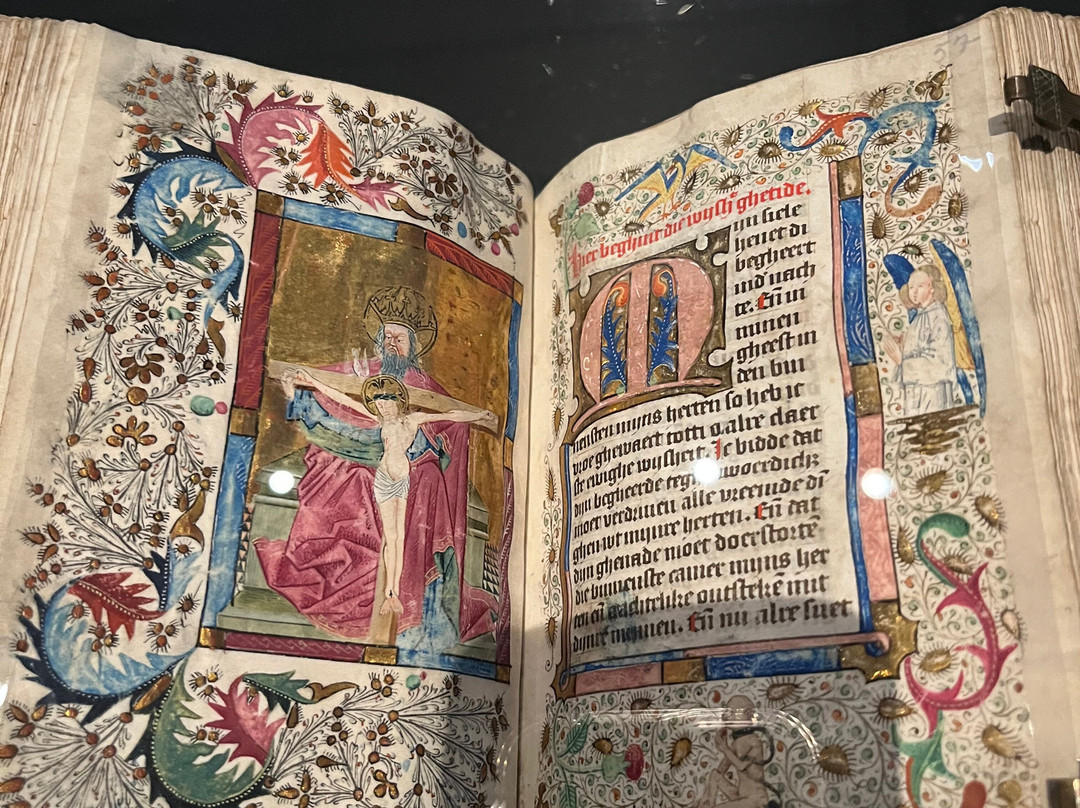 52
Hier beghint die wijsh̄ ghetide.
Mijn siele
heuet di
begheert
ind' nach
te. En̄ in
minen
gheest in
den bin
nensten mijns herten so heb ic
vroe ghewaect totti o. alre claer
ste ewighe wijsheit. Ic bidde dat
dijn begheerde teghē woerdichz
moet verdriuen alle vreemde di
ghen wt mijnre herten. En̄ dat
dijn ghenade moet doerstortē
die binnenste camer mijns her
ten en̄ crachtelike ontstekē mit
dijnre minnen. En̄ nu alre suet